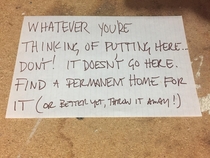 WHATEVER YOU'RE
THINKING OF PUTTING HERE...
DON'T! IT DOESN'T GO HERE.
FIND A PERMANENT HOME FOR
IT (OR BETTER YET, THROW IT AWAY!)